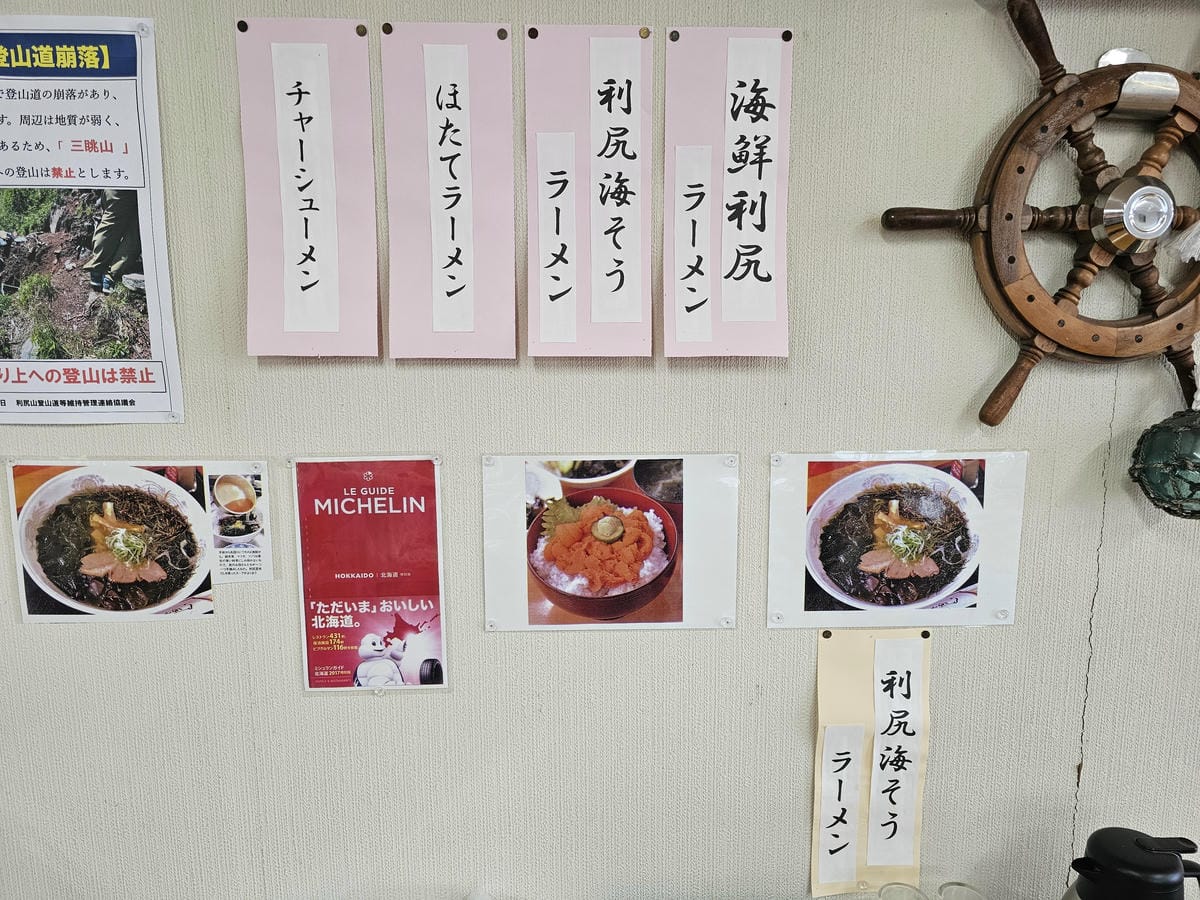 登山道崩落】
で登山道の崩落があり、
す。周辺は地質が弱く、
あるため、「 三眺山 」
への登山は禁止とします。
り上への登山は禁止
日 利尻山登山道等維持管理連絡協議会
海鮮利尻
ラーメン
利尻海そう
ラーメン
ほたてラーメン
チャーシューメン
LE GUIDE
MICHELIN
HOKKAIDO | 北海道 特別版
「ただいま」おいしい
北海道。
レストラン431軒
宿泊施設174軒
ビブグルマン116軒を掲載
ミシュランガイド
北海道 2017 特別版
利尻海そう
ラーメン